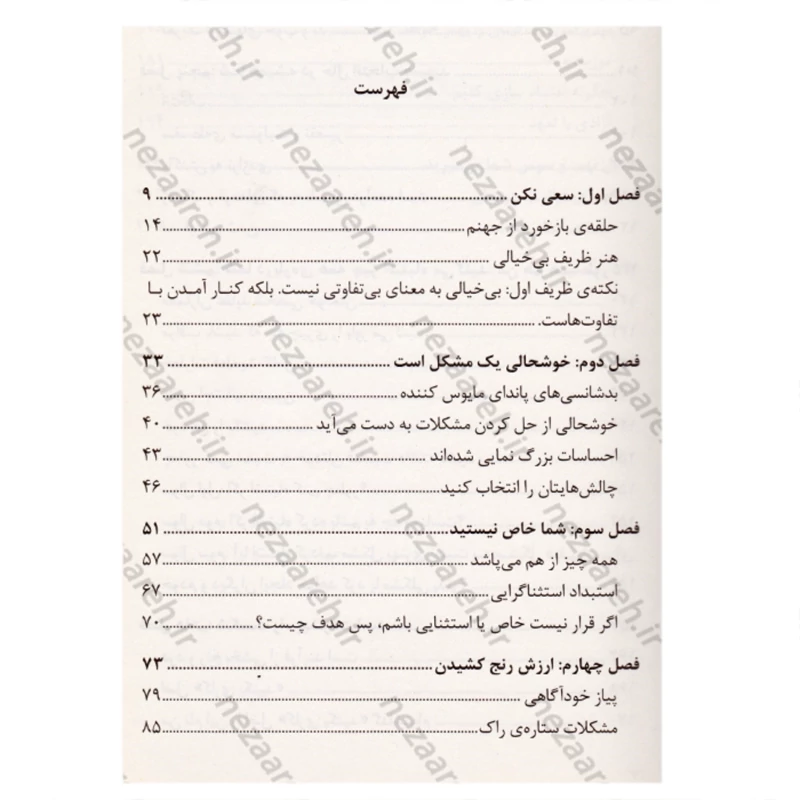 فهرست
فصل اول: سعی نکن ........ ۹
حلقه‌ی بازخورد از جهنم ........ ۱۴
هنر ظریف بی‌خیالی ........ ۲۲
نکته‌ی ظریف اول: بی‌خیالی به معنای بی‌تفاوتی نیست. بلکه کنار آمدن با
تفاوت‌هاست. ........ ۲۳
فصل دوم: خوشحالی یک مشکل است ........ ۳۳
بدشانسی‌های پاندای مایوس کننده ........ ۳۶
خوشحالی از حل کردن مشکلات به دست می‌آید ........ ۴۰
احساسات بزرگ نمایی شده‌اند ........ ۴۳
چالش‌هایتان را انتخاب کنید ........ ۴۶
فصل سوم: شما خاص نیستید ........ ۵۱
همه چیز از هم می‌پاشد ........ ۵۷
استبداد استثناگرایی ........ ۶۷
اگر قرار نیست خاص یا استثنایی باشم، پس هدف چیست؟ ........ ۷۰
فصل چهارم: ارزش رنج کشیدن ........ ۷۳
پیاز خودآگاهی ........ ۷۹
مشکلات ستاره‌ی راک ........ ۸۵
nezaareh.ir